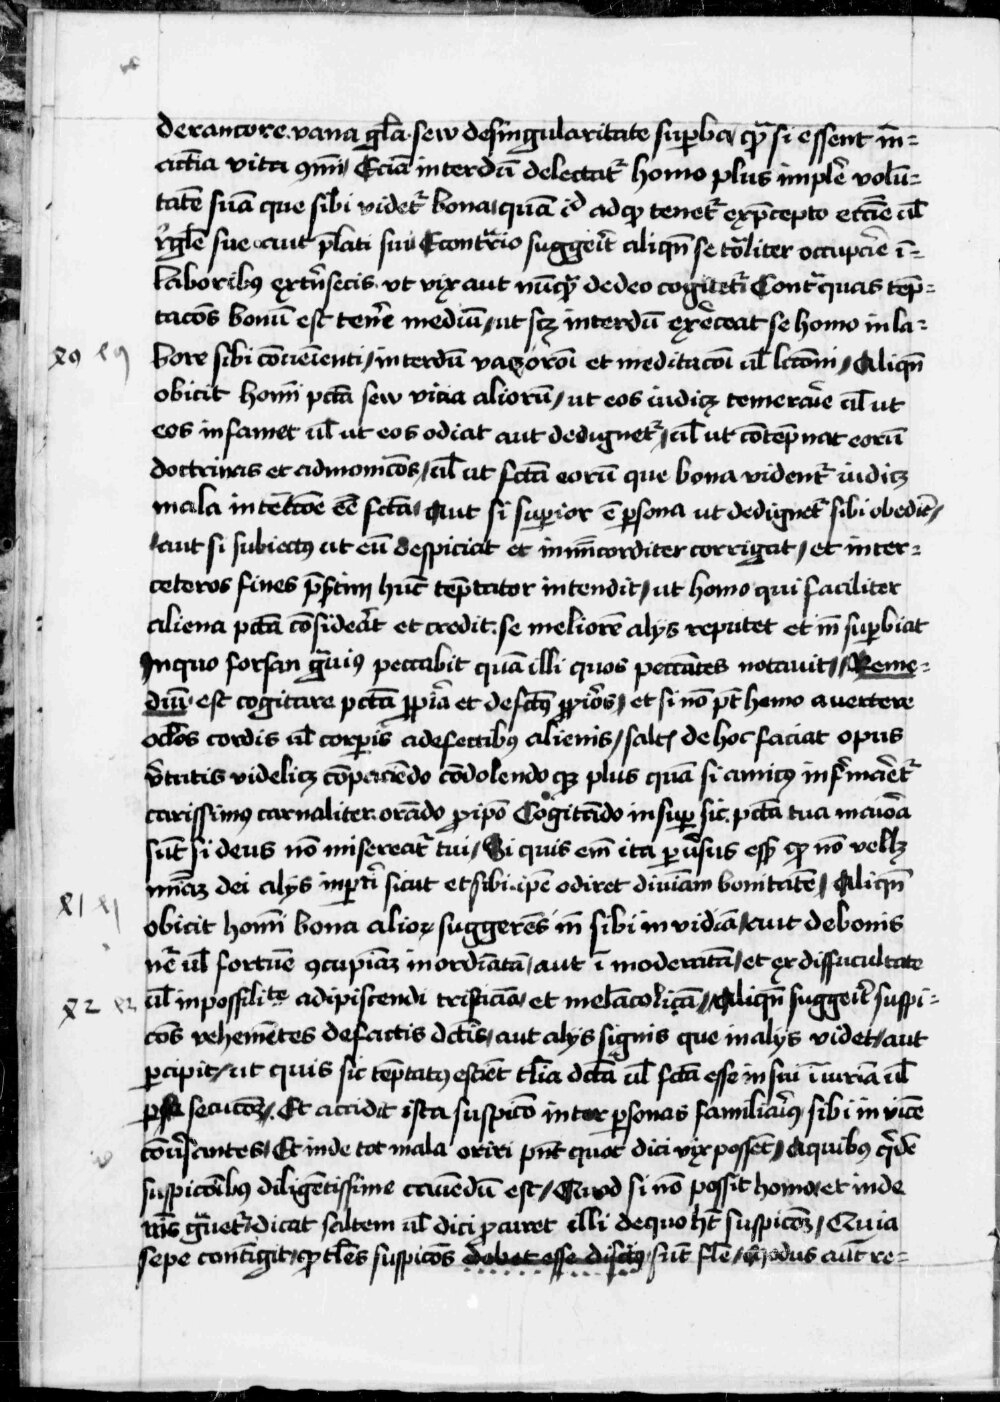 de rancore. vana gl̄a. sew de singularitate suꝑba / qͣ si essent in̄=
cuetīa vita ꝯmūi / Eciā interdū delectatᷣ homo plus implē volū=
tatē suā que sibi videtᷣ bona / quā id ad qd tenetᷣ ex p̄cepto eccīe ul̄
rḡle sue aut p̄lati sui Econtᷓrio suggerit aliqn̄ se tᷓliter occupare ī=
laboribꝰ extn̄secis. ut vix aut nūqͣ de deo cogitetᷣ Contᷓ quas tēp=
tacōs bonū est tenē mediū / ut scꝫ interdū exerceat se homo in la=
x9 x9 bore sibi cōueniēnti / interdū vacꝫ orōi et meditacōi ul̄ lc̄cōni / Aliqn̄
obicit homī pctā sew vitia aliorū / ut eos iudicꝫ temerarie ul̄ ut
eos infamet ul̄ ut eos odiat aut dedignetᷣ / ul̄ ut cōtēpnat eorū
doctrinas et admonicōs / ul̄ ut fctā eorū que bona videntᷣ iudicꝫ
mala intēcōe eē fctā / Aut si suꝑior ē ꝑsona ut dedignetᷣ sibi obedire /
aut si subiectꝰ ut eū despiciat et inmīcorditer corrigat / et inter=
ceteros fines p̄stim huc tēptator intendit / ut homo qui faciliter
aliena pctā cōsiderat et credit. se meliorē alys reputet et in̄ suꝑbiat
In quo forsan gᷓuiꝰ peccabit quā illi quos peccātes notauit // Reme=
diū est cogitare pctā ꝓpia et defctꝰ ꝓpios / et si nō pt̄ homo avertere
oclōs cordis ul̄ corꝑis a defectibꝰ alienis / salt̄ de hoc faciat opus
v̄tutis videlicꝫ cōpaciēdo cōdolendo qꝫ plus quā si amicꝰ infirmaretᷣ
carissimꝰ carnaliter. orādo ꝓ ipō Cogitādo insuꝑ sic. pctā tua maiora
sūt si deus nō misereatᷣ tui / Si quis em̄ ita ꝑuersus esset qd nō vellꝫ
mīaꝫ dei alys inꝑtiri sicut et sibi. ipē odiret diuīam bonitatē / Aliqn̄
x1 x1 obicit homī bona alioꝝ suggerēs in̄ sibi inuidiā / aut de bonis
nē ul̄ fortūe ꝯcupiāꝫ inordīatā / aut īmoderatā / et ex diffucultate
x2 x2 ul̄ inpossilite adipiscendi tristiciā / et melācolicā / Aliqn̄ suggerit suspi=
cōs vehemētes de factis dctis / aut alys signis que in alys videt / aut
ꝑcipit / ut quis sic tēptatꝰ estīet tl̄ia dctā ul̄ fctā esse in sui īiuriā ul̄
ꝑsecucōꝫ. Et accidit ista suspico inter ꝑsonas familiarꝰ sibi inuicē
cōuersantes / Et inde tot mala oriri pn̄t quot dici vix possēt / A quibus qͥdē
suspicōibꝰ diligētissime cauendū est / Quod si nō possit homo / et inde
nīs gᷓuetᷣ / dicat saltem ul̄ dici ꝓcuret illi de quo ht̄ suspicōꝫ / Quia
sepe contīgit / qd tl̄es suspicōs debet esse discꝰ sūt fl̄e / modus aut̄ re=